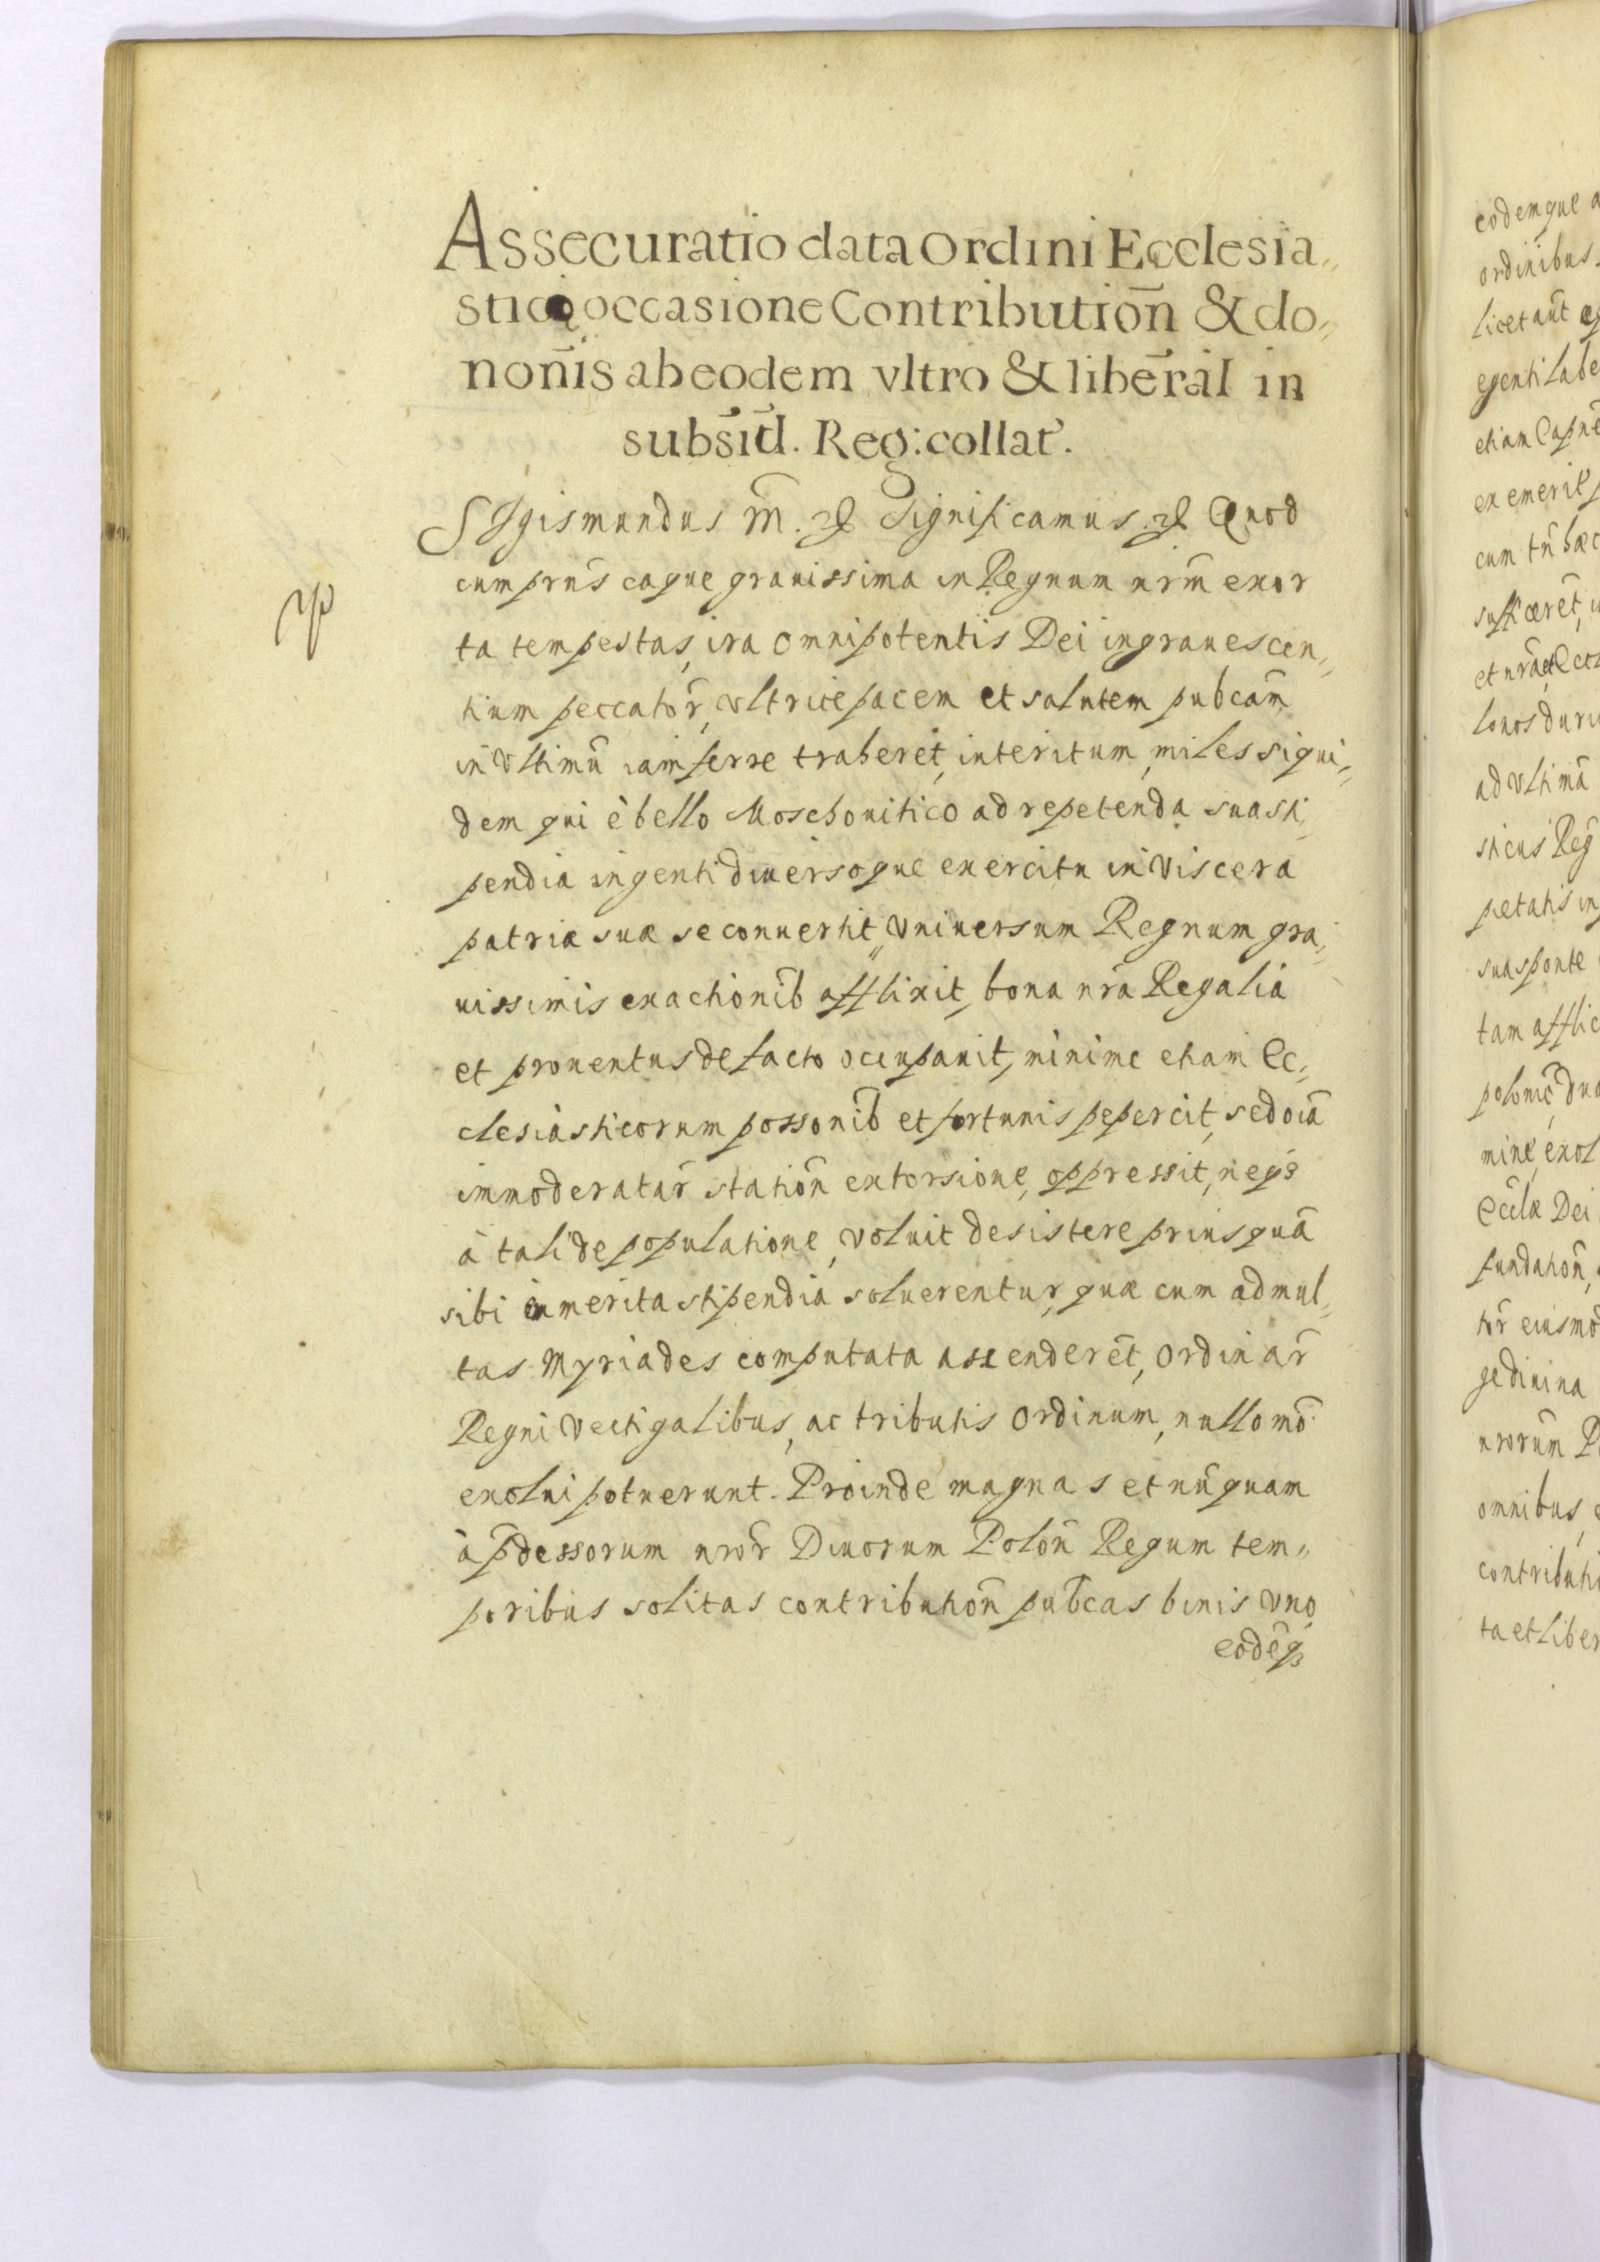 Assecuratio data Ordini Ecclesia„
stico occasione Contributioñ & do„
nonĩs ab eodem vltro & liberãl in
subsĩd. Reg: collat̃.
SIgismundus m̃. Significamus. Quod
cum prñs eaque grauissima in Regnum nr̃m exor
ta tempestas, ira Omnipotentis Dei ingrauescen„
tium peccator̃, vltrice pacem et salutem pubcam̃
in vltimũ iam ferre traheret, interitum, miles siqui„
dem qui è bello Moschouitico ad repetenda sua sti„
pendia ingenti diuersoque exercitu in viscera
patriæ suæ se conuertit, vniuersum Regnum gra„
uissimis exactionib̃ afflixit, bona nr̃a Regalia
et prouentus de facto occupauit, minime etiam Ec„
clesiasticorum possonib̃ et fortunis pepercit, sed oĩa
immoderatar̃ statioñ extorsione, oppressit, neqꝫ
à tali depopulatione, voluit desistere priusquã
sibi emerita stipendia soluerentur, quæ cum ad mul„
tas Myriades computata ascenderẽt, Ordinar̃
Regni vectigalibus, ac tributis Ordinum, nullo mõ
exolui potuerunt. Proinde magnas et nũquam
à p̃dessorum nror̃ Diuorum Poloñ Regum tem„
poribus solitas contributioñ pub̃cas binis vno
eodẽqꝫ
eodemque
ordinibus
etiam
cum tñ hæc
ad vltimã
sua sponte
Ecclæ Dei
fundatioñ
omnibus
ta et liber